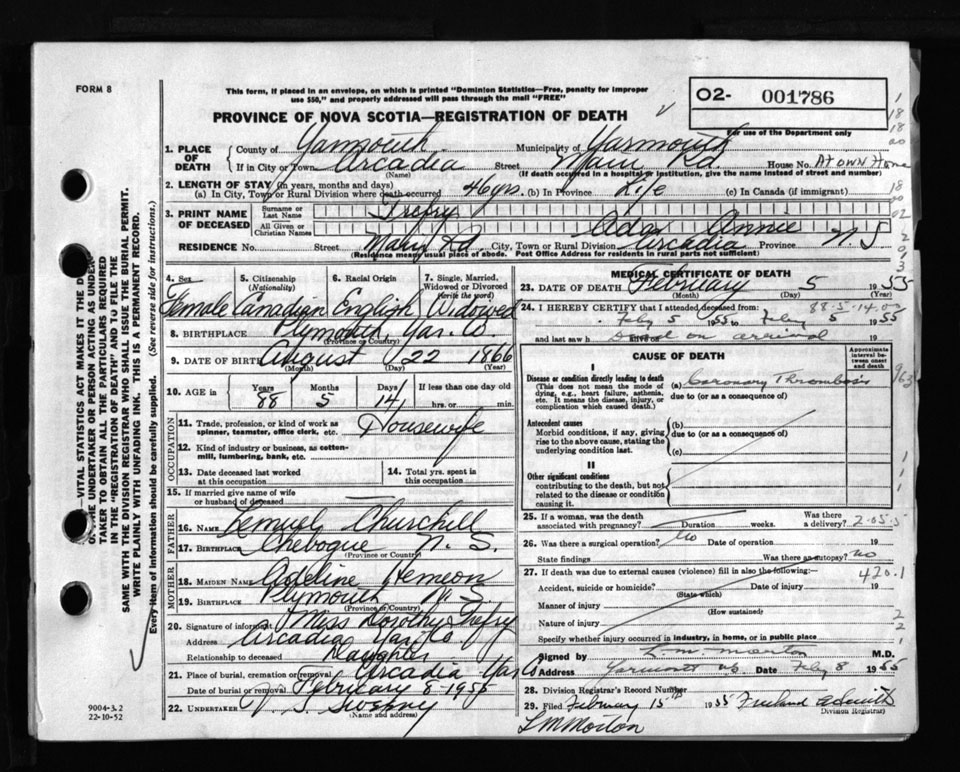 FORM 8
This form, if placed in an envelope, on which is printed "Dominion Statistics—Free, penalty for improper
use $50," and properly addressed will pass through the mail "FREE"
PROVINCE OF NOVA SCOTIA—REGISTRATION OF DEATH
O2- 001786
For use of the Department only
1. PLACE OF DEATH
County of Yarmouth Municipality of Yarmouth
If in City or Town Arcadia (Name) Street Main Rd. House No. At own Home
(If death occurred in a hospital or institution, give the name instead of street and number)
2. LENGTH OF STAY (in years, months and days)
(a) In City, Town or Rural Division where death occurred 46 yrs. (b) In Province Life (c) In Canada (if immigrant)
3. PRINT NAME OF DECEASED
Surname or Last Name Trefry
All Given or Christian Names Ada Annie
RESIDENCE No. Street Main Rd. City, Town or Rural Division Arcadia Province N.S
(Residence means usual place of abode. Post Office Address for residents in rural parts not sufficient)
4. Sex Female
5. Citizenship (Nationality) Canadian
6. Racial Origin English
7. Single, Married, Widowed or Divorced (write the word) Widowed
8. BIRTHPLACE Plymouth, Yar. Co.
(Province or Country)
9. DATE OF BIRTH August 22 1866
(Month) (Day) (Year)
10. AGE in Years 88 Months 5 Days 14 If less than one day old
hrs. or min.
OCCUPATION
11. Trade, profession, or kind of work as spinner, teamster, office clerk, etc. Housewife
12. Kind of industry or business, as cotton-mill, lumbering, bank, etc.
13. Date deceased last worked at this occupation
14. Total yrs. spent in this occupation
15. If married give name of wife or husband of deceased
FATHER
16. NAME Lemuel Churchill
17. BIRTHPLACE Chebogue N. S.
(Province or Country)
MOTHER
18. MAIDEN NAME Adeline Hemeon
19. BIRTHPLACE Plymouth N. S.
(Province or Country)
20. Signature of informant Miss Dorothy Trefry
Address Arcadia Yar. Co
Relationship to deceased Daughter
21. Place of burial, cremation or removal Arcadia Yar Co
Date of burial or removal February 8 1955
22. UNDERTAKER V. S. Sweeny
(Name and address)
MEDICAL CERTIFICATE OF DEATH
23. DATE OF DEATH February 5 1955
(Month) (Day) (Year)
24. I HEREBY CERTIFY that I attended deceased from 88-5-14
Feby 5 1955 to Feby 5 1955
and last saw h alive on Dead on arrival 19
CAUSE OF DEATH
Approximate interval between onset and death
I
Disease or condition directly leading to death
(This does not mean the mode of dying, e.g., heart failure, asthenia, etc. It means the disease, injury, or complication which caused death.)
(a) Coronary Thrombosis
due to (or as a consequence of)
Antecedent causes
Morbid conditions, if any, giving rise to the above cause, stating the underlying condition last.
(b)
due to (or as a consequence of)
(c)
II
Other significant conditions
contributing to the death, but not related to the disease or condition causing it.
25. If a woman, was the death associated with pregnancy? Duration weeks. Was there a delivery? 2-05-5
26. Was there a surgical operation? No Date of operation 19
State findings Was there an autopsy? No
27. If death was due to external causes (violence) fill in also the following:— 420.1
Accident, suicide or homicide? Date of injury 19
(State which)
Manner of injury
(How sustained)
Nature of injury
Specify whether injury occurred in industry, in home, or in public place
Signed by L. M. Morton M.D.
Address Yarmouth NS Date Feby 8 1955
28. Division Registrar's Record Number
29. Filed February 15th 1955
Division Registrar)
L M Morton
VITAL STATISTICS ACT MAKES IT THE
THE UNDERTAKER OR PERSON ACTING AS UNDER-
TAKER TO OBTAIN ALL THE PARTICULARS REQUIRED
IN THE "REGISTRATION OF DEATH" AND TO FILE THE
SAME WITH THE DIVISION REGISTRAR WHO SHALL ISSUE THE BURIAL PERMIT.
WRITE PLAINLY WITH UNFADING INK. THIS IS A PERMANENT RECORD.
Every item of information should be carefully supplied. (See reverse side for instructions.)
9004-3.2
22-10-52